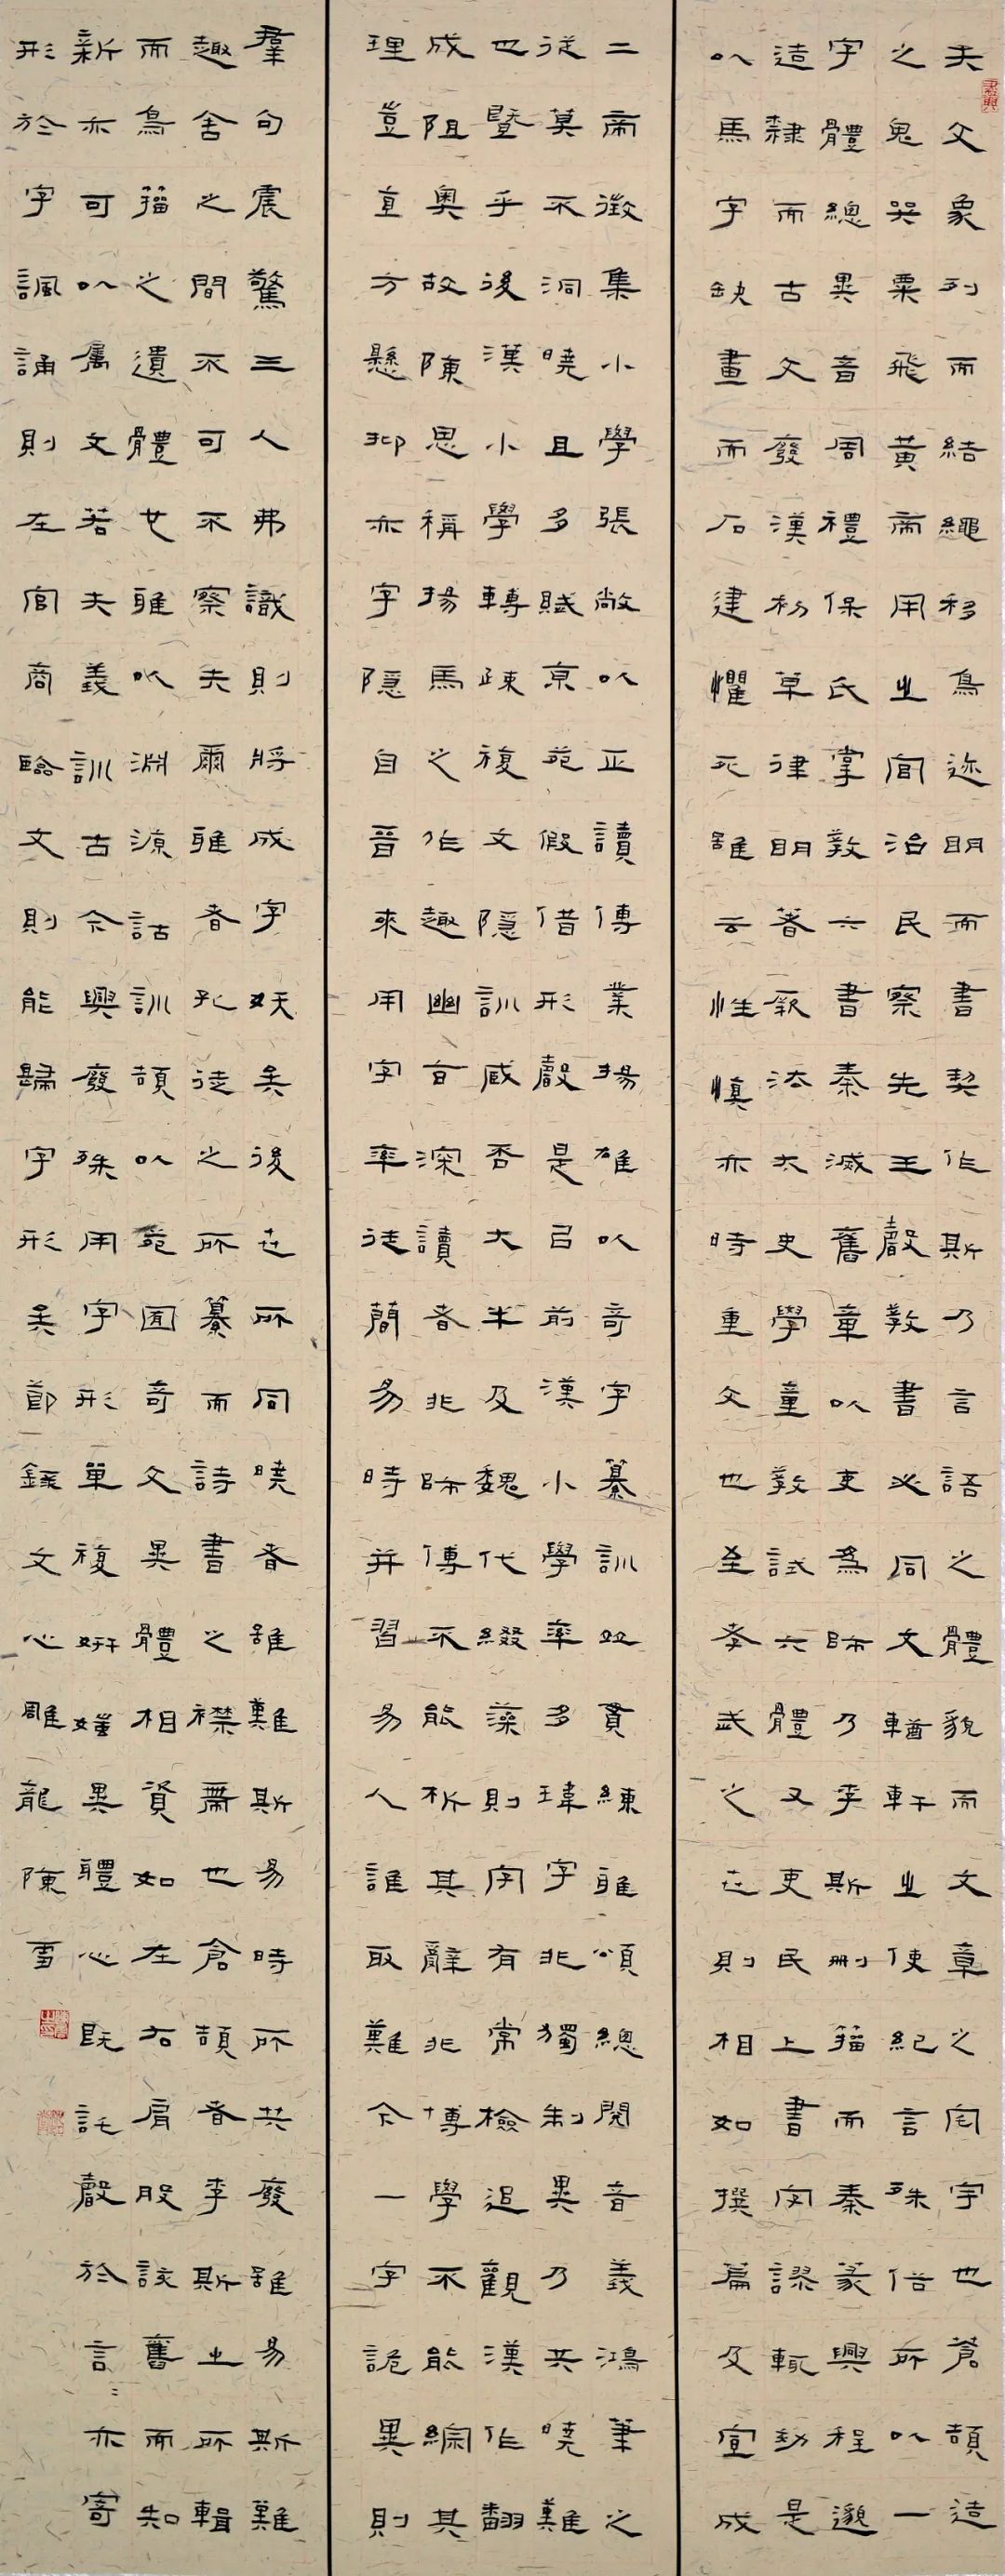 夫文象列而結繩移鳥迹明而書契作斯乃言語之體貌而文章之宅宇也蒼頡造
之鬼哭粟飛黃帝用之官治民察先王聲教書必同文輶軒之使紀言殊俗所以一
字體總異音周禮保氏掌教六書秦滅舊章以吏為師乃李斯刪籀而秦篆興程邈
造隸而古文廢漢初草律明著厥法太史學童教試六體又吏民上書字謬輒劾是
以馬字缺畫而石建懼死雖云性慎亦時重文也至孝武之世則相如撰篇及宣成
二帝徵集小學張敞以正讀傳業揚雄以奇字纂訓並貫練雅頌總閱音義鴻筆之
徒莫不洞曉且多賦京苑假借形聲是以前漢小學率多瑋字非獨制異乃共曉難
也暨乎後漢小學轉疎複文隱訓臧否大半及魏代綴藻則字有常檢追觀漢作翻
成阻奧故陳思稱揚馬之作趣幽旨深讀者非師傳不能析其辭非博學不能綜其
理豈直才懸抑亦字隱自晉來用字率從簡易時并習易人誰取難今一字詭異則
羣句震驚三人弗識則將成字妖矣後世所同曉者雖難斯易時所共廢雖易斯難
趣舍之間不可不察夫爾雅者孔徒之所纂而詩書之襟帶也倉頡者李斯之所輯
而鳥籀之遺體也雅以淵源詁訓頡以苑囿奇文異體相資如左右肩股該舊而知
新亦可以屬文若夫義訓古今興廢殊用字形單複妍媸異體心既託聲於言〻亦寄
形於字諷誦則在宮商臨文則能歸字形矣節錄文心雕龍陳雪